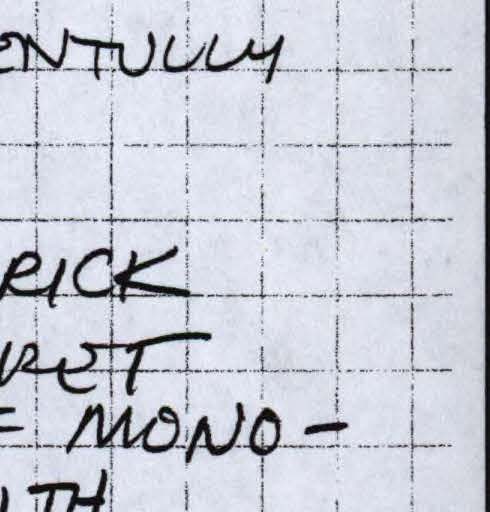 ENTULLY
RICK
RET
= MONO-
LTH